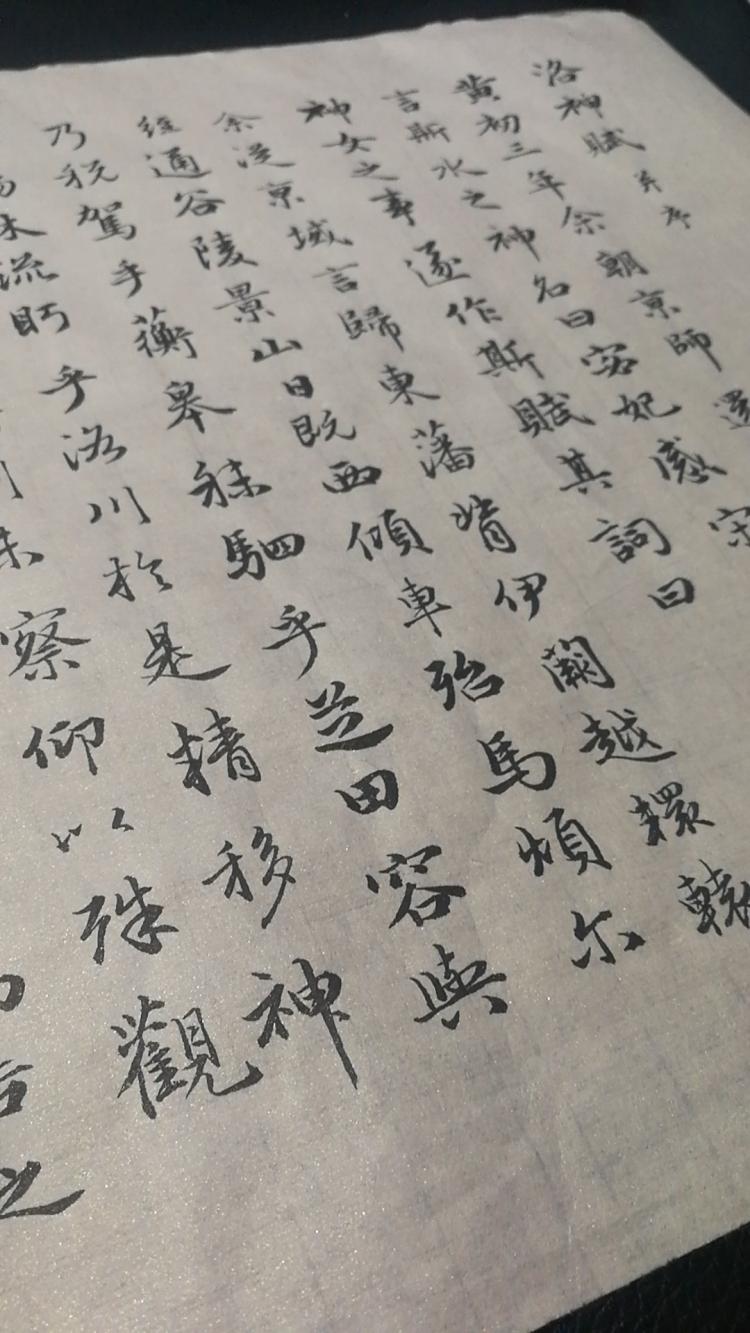 洛神賦并序
黃初三年余朝京師還
言斯水之神名曰宓妃感宋
神女之事遂作斯賦其詞曰
余從京域言歸東藩背伊闕越轘轅
經通谷陵景山日既西傾車殆馬煩尔
乃稅駕乎蘅皋秣駟乎芝田容與
林流眄乎洛川於是精移神
未察仰以殊觀
之